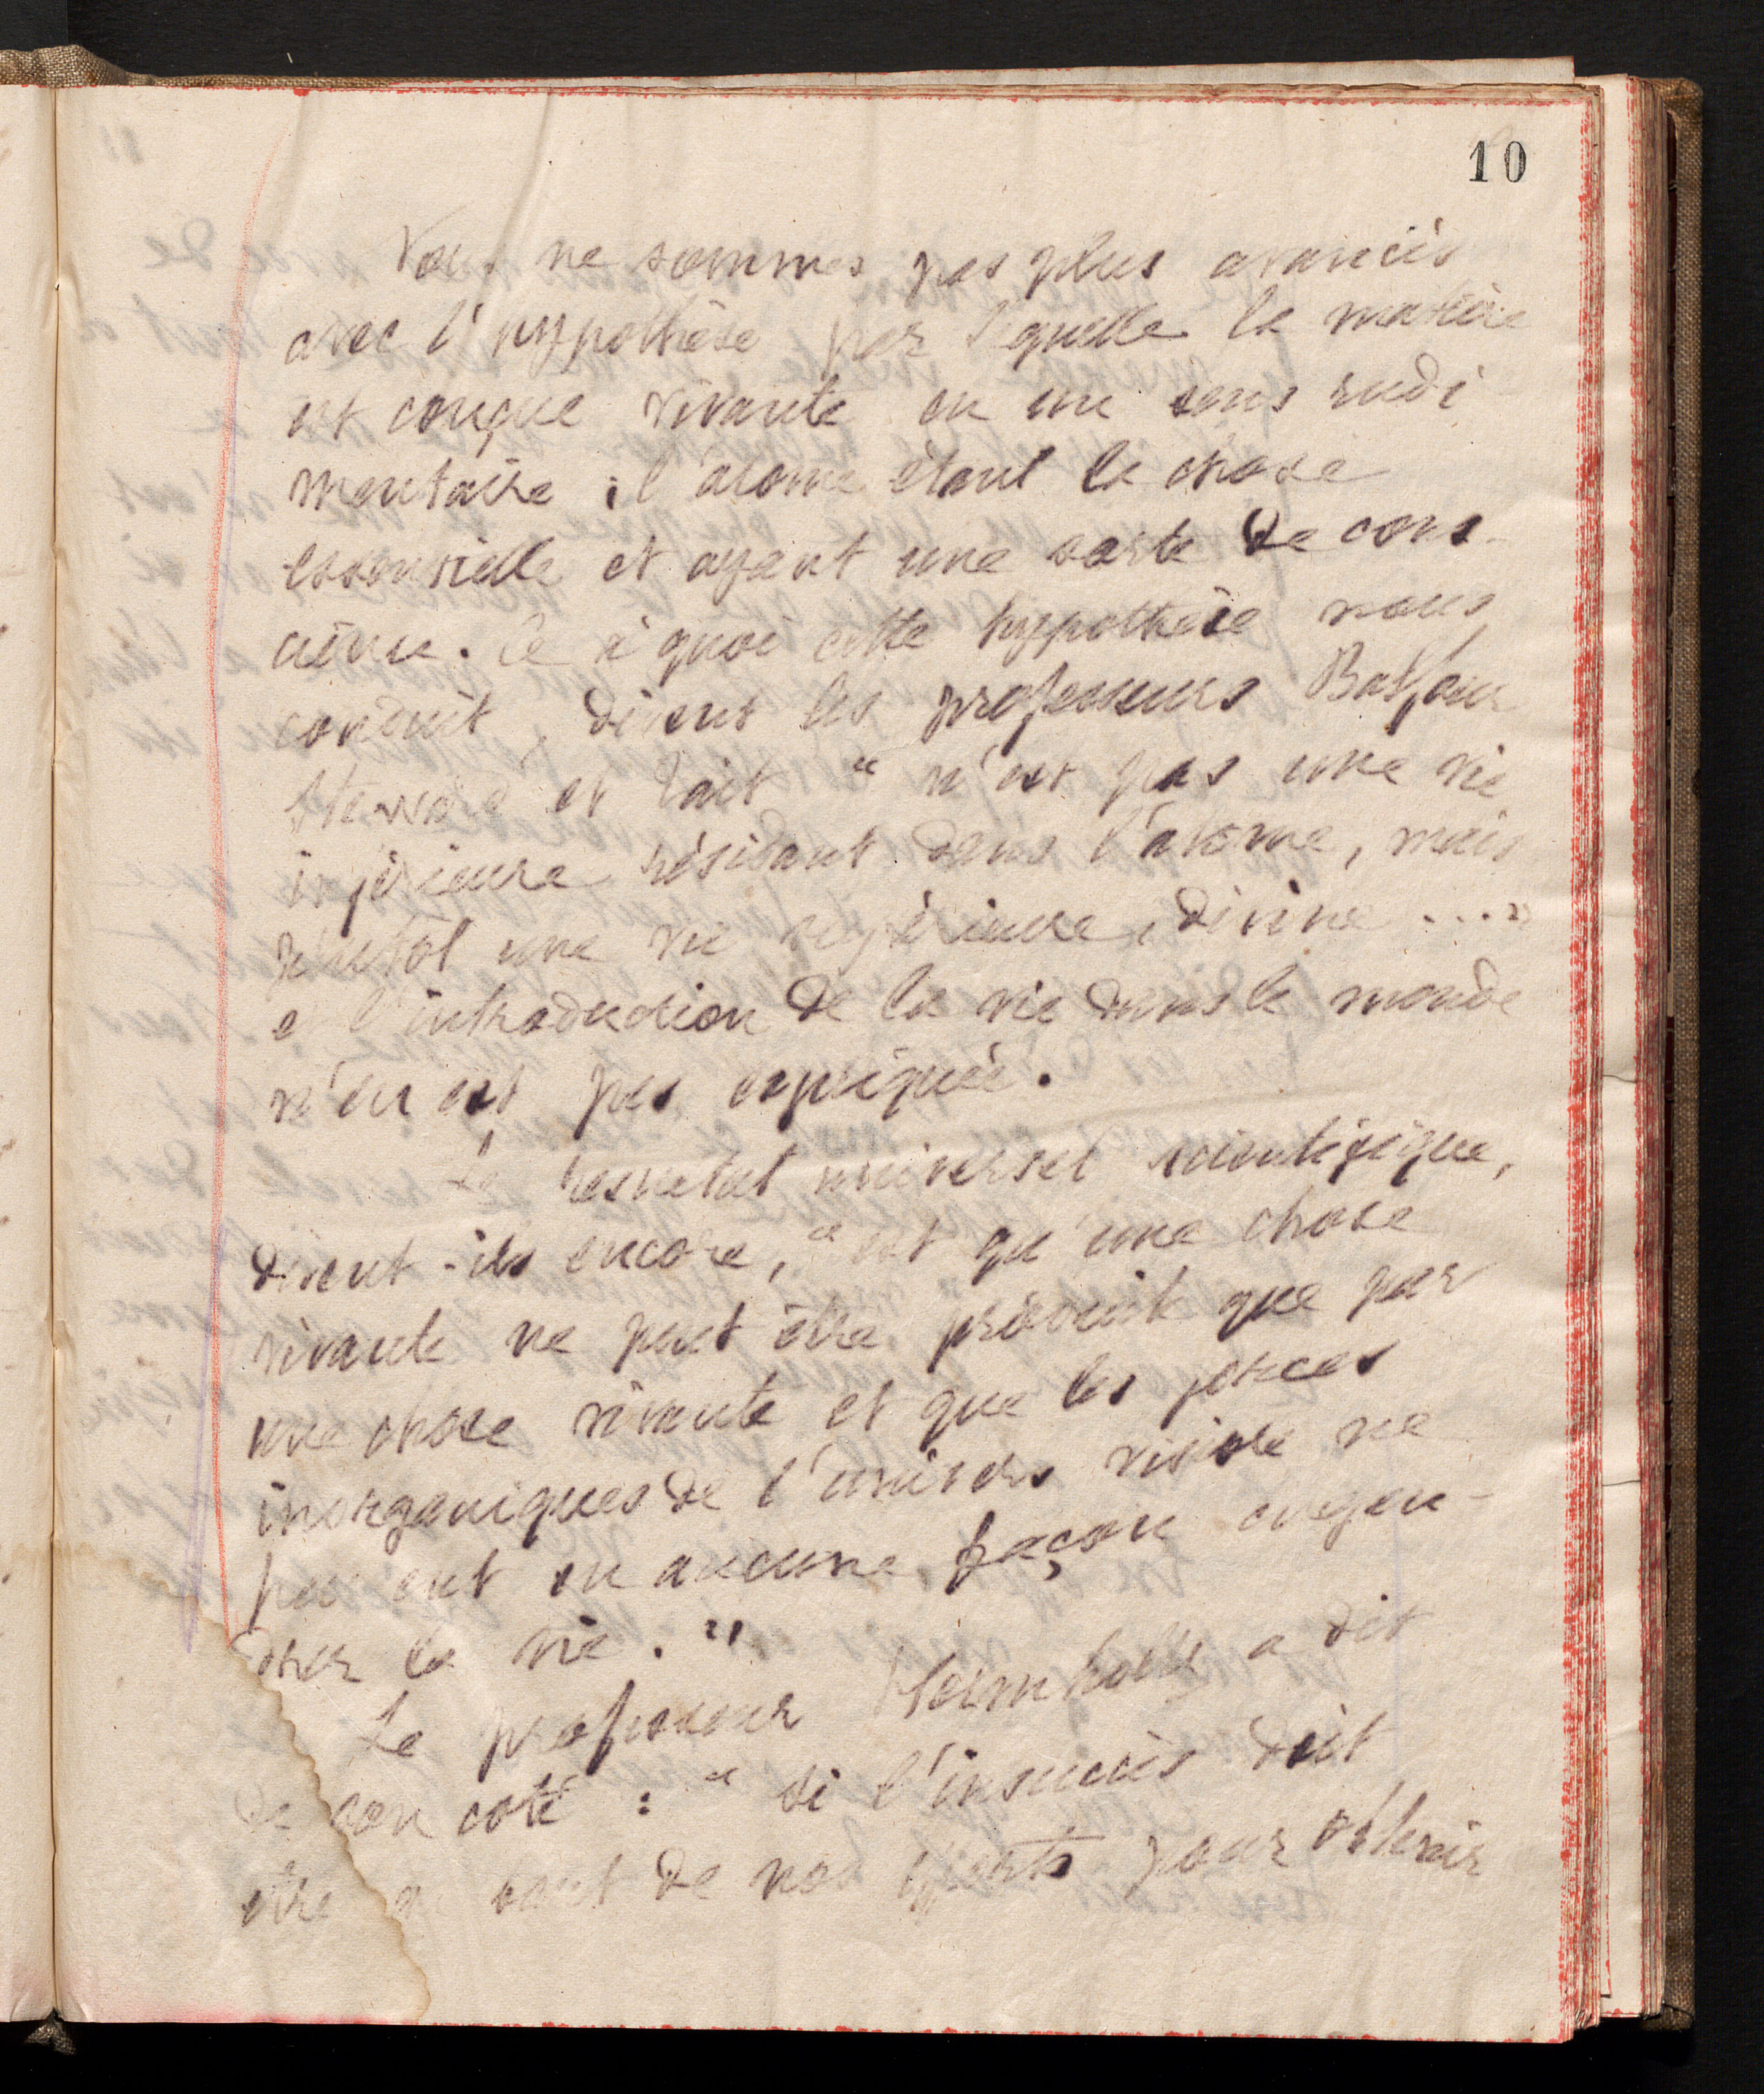 10
Nous ne sommes pas plus avancés
avec l'hypothèse par laquelle la matière
est conçue vivante en un sens rudi
mentaire ; l'atome étant la chose
essentielle et ayant une sorte de cons-
cience. Ce à quoi cette hypothèse nous
conduit, disent les professeurs Balfour
Steward et Tait " n'est pas une vie
inférieure résidant dans l'atome, mais
plutôt une vie supérieure, divine .... "
et l'introduction de la vie dans le monde
n'en est pas expliquée.
Le resultat universel scientifique,
disent-ils encore, " est qu'une chose
vivante ne peut être produite que par
une chose vivante et que les forces
inorganiques de l'univers visible ne
peuvent en aucune façon engen-
drer la vie. "
Le professeur Hermholtz a dit
de son coté : " Si l'insuccès doit
etre de nos efforts pour obtenir